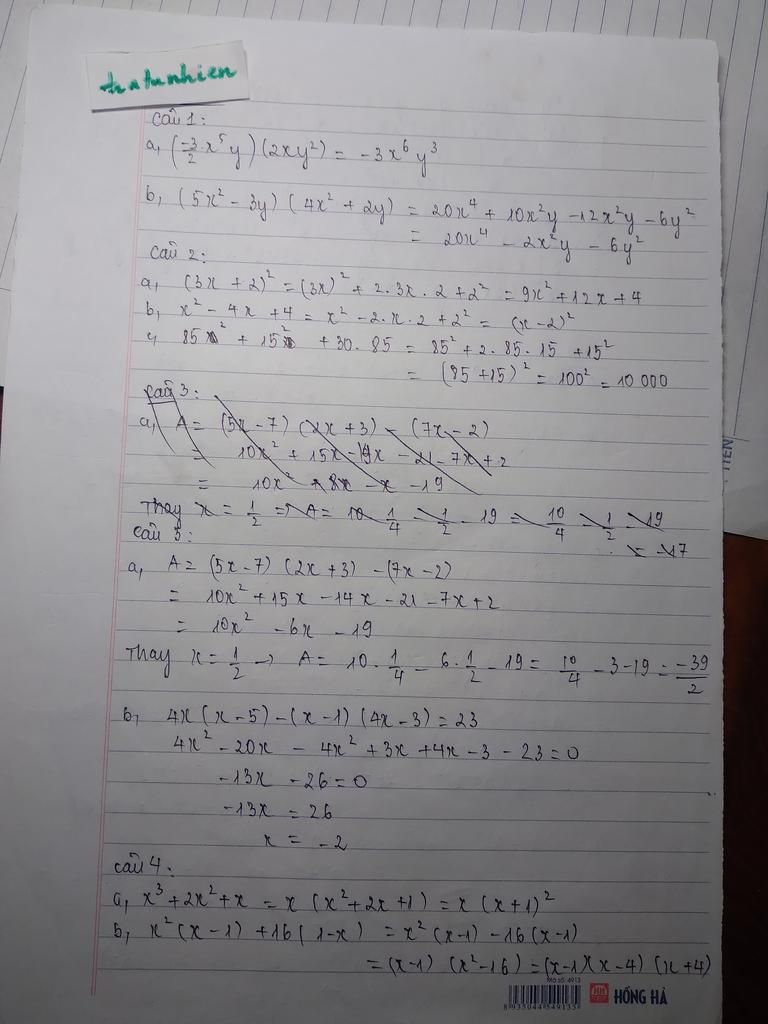 tratunhien
Câu 1:
a, (-3/2 x⁵y)(2xy²) = -3x⁶y³
b, (5x² - 3y)(4x² + 2y) = 20x⁴ + 10x²y - 12x²y - 6y²
= 20x⁴ - 2x²y - 6y²
Câu 2:
a, (3x + 2)² = (3x)² + 2.3x.2 + 2² = 9x² + 12x + 4
b, x² - 4x + 4 = x² - 2.x.2 + 2² = (x - 2)²
c, 85² + 15² + 30.85 = 85² + 2.85.15 + 15²
= (85 + 15)² = 100² = 10 000
Câu 3:
a, A = (5x - 7)(2x + 3) - (7x - 2)
= 10x² + 15x - 14x - 21 - 7x + 2
= 10x² - x - 19
Thay x = 1/2 => A = 10 1/4 - 1/2 - 19 = 10/4 - 1/2 - 19
= -17
Câu 3:
a, A = (5x - 7)(2x + 3) - (7x - 2)
= 10x² + 15x - 14x - 21 - 7x + 2
= 10x² - 6x - 19
Thay x = 1/2 → A = 10 . 1/4 - 6 . 1/2 - 19 = 10/4 - 3 - 19 = -39/2
b, 4x(x - 5) - (x - 1)(4x - 3) = 23
4x² - 20x - 4x² + 3x + 4x - 3 - 23 = 0
-13x - 26 = 0
-13x = 26
x = -2
Câu 4:
a, x³ + 2x² + x = x(x² + 2x + 1) = x(x + 1)²
b, x²(x - 1) + 16(1 - x) = x²(x - 1) - 16(x - 1)
= (x - 1)(x² - 16) = (x - 1)(x - 4)(x + 4)
MÃ SỐ: 4913
8 935044 549135
HH HỒNG HÀ